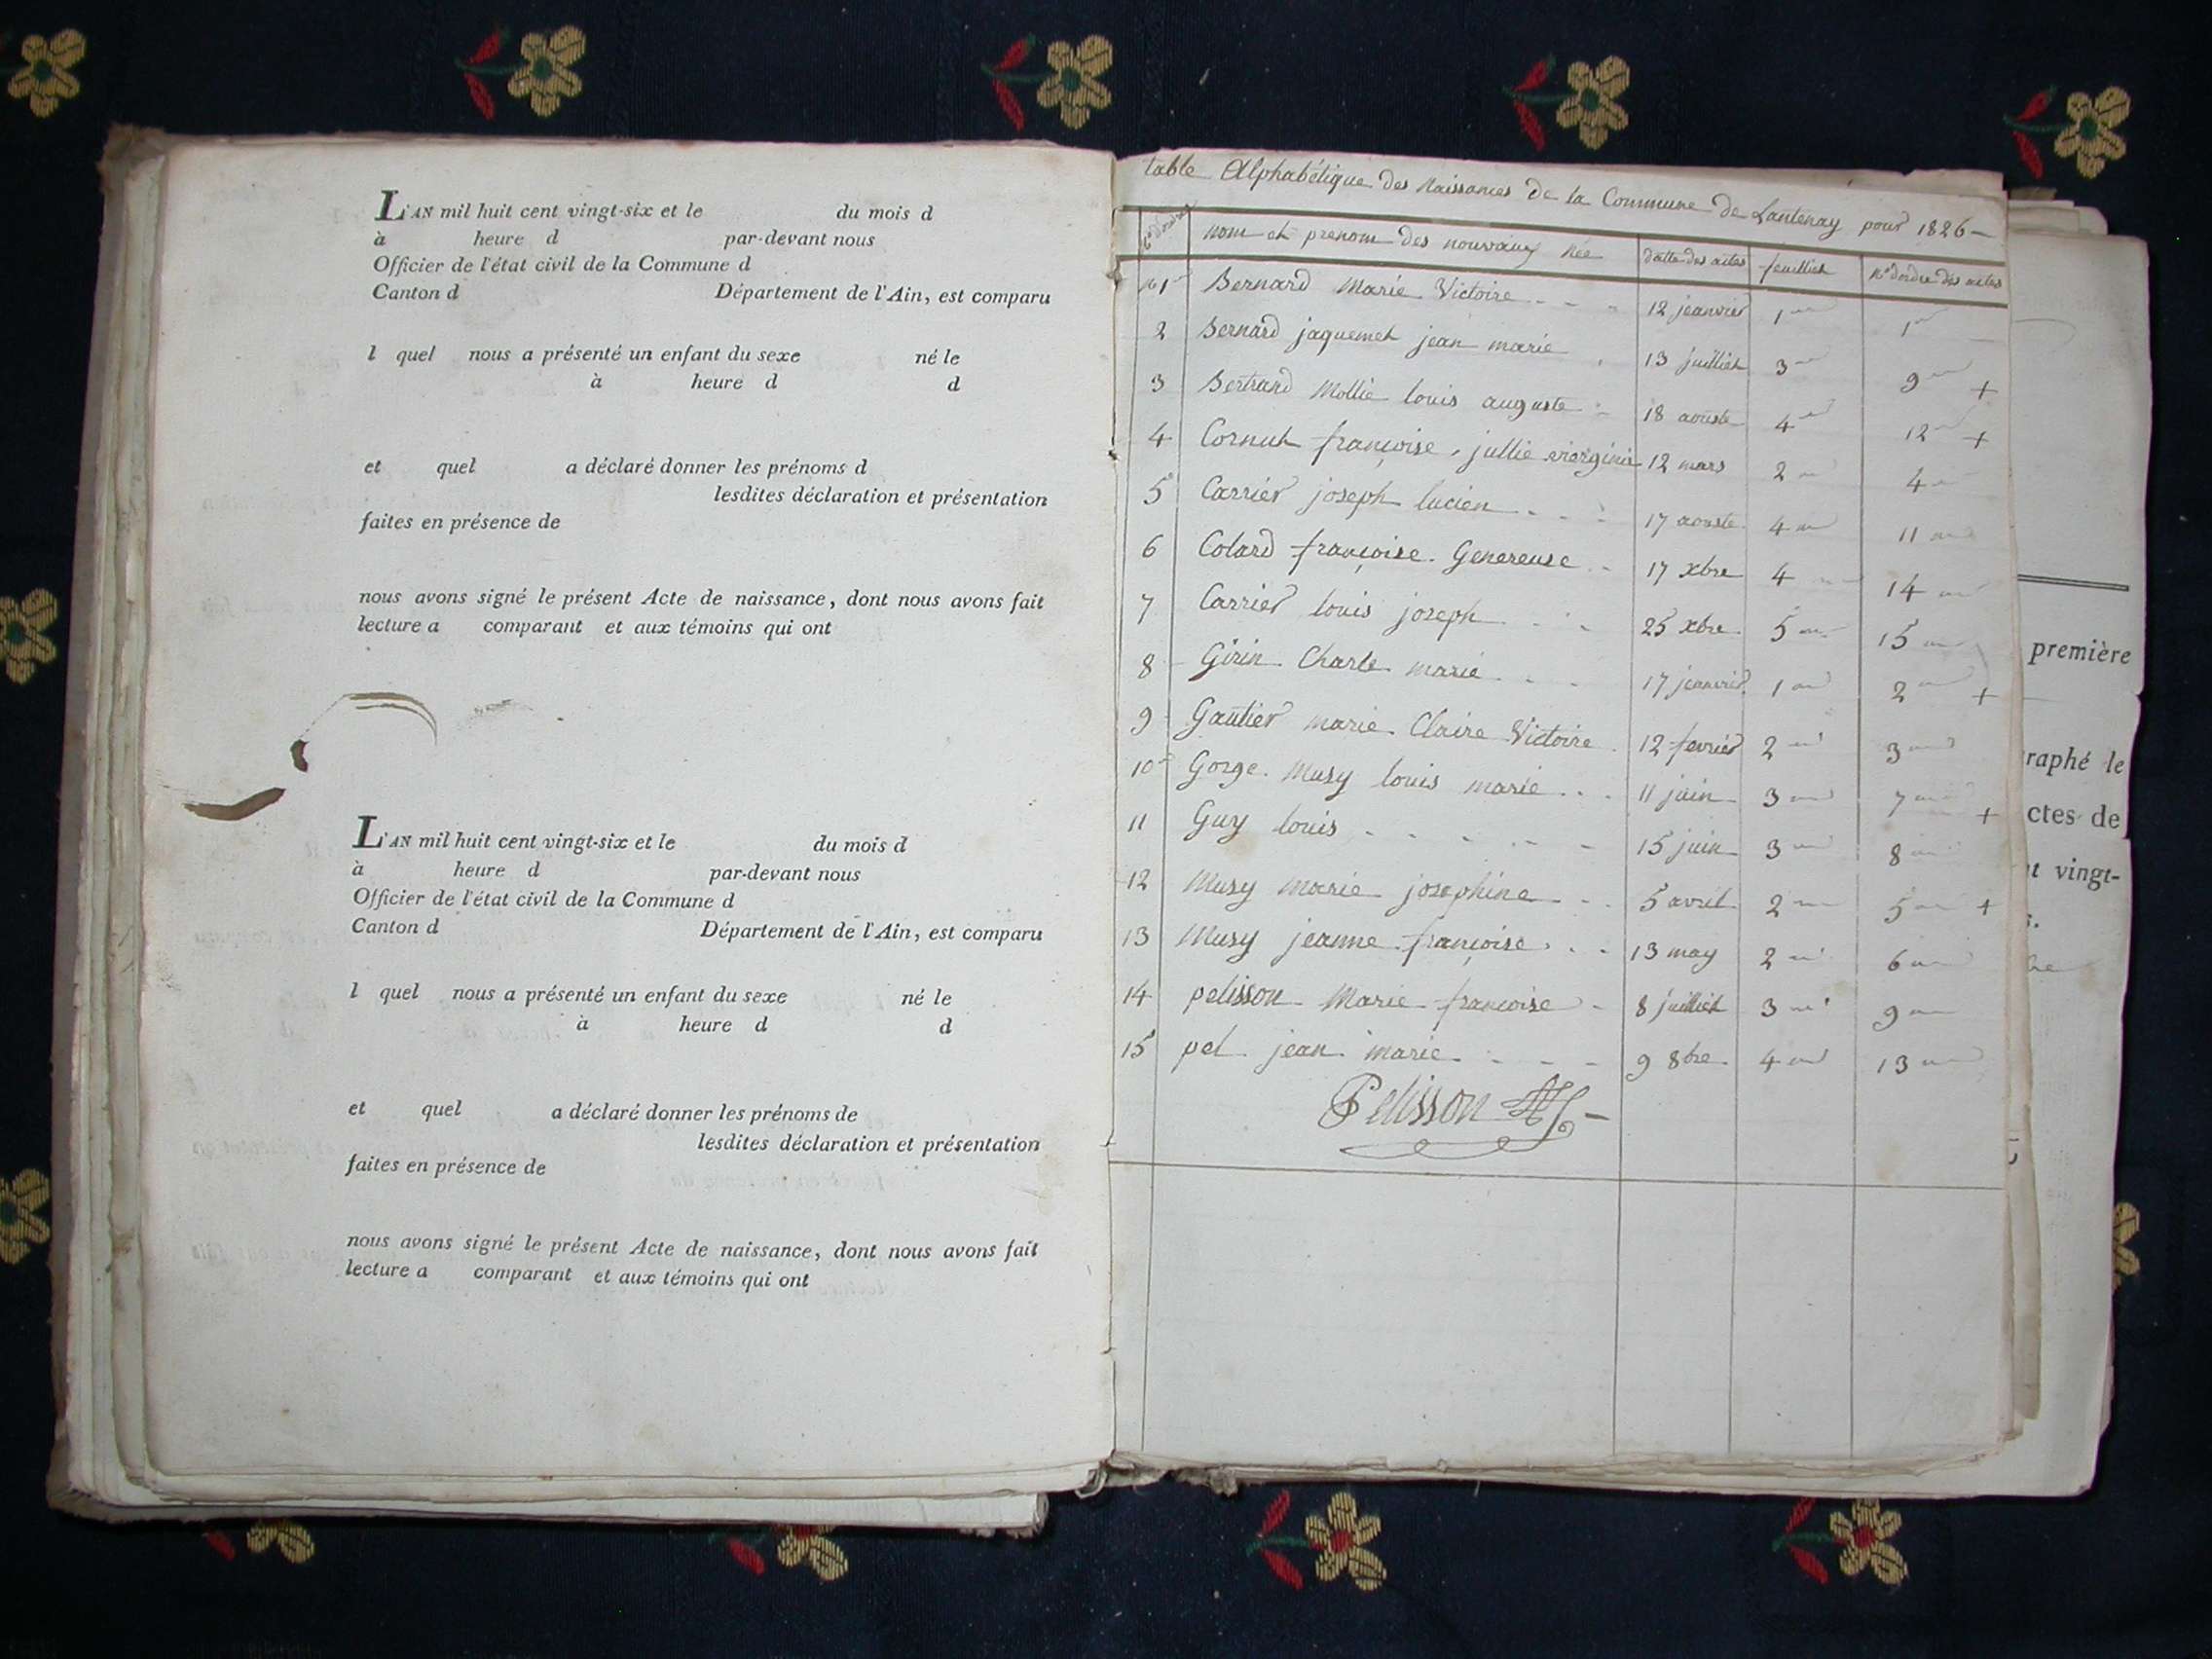 L'AN mil huit cent vingt-six et le du mois d
à heure d par-devant nous
Officier de l'état civil de la Commune d
Canton d Département de l'Ain, est comparu
l quel nous a présenté un enfant du sexe né le
à heure d d
et quel a déclaré donner les prénoms d
lesdites déclaration et présentation
faites en présence de
nous avons signé le présent Acte de naissance, dont nous avons fait
lecture a comparant et aux témoins qui ont
L'AN mil huit cent vingt-six et le du mois d
à heure d par-devant nous
Officier de l'état civil de la Commune d
Canton d Département de l'Ain, est comparu
l quel nous a présenté un enfant du sexe né le
à heure d d
et quel a déclaré donner les prénoms de
lesdites déclaration et présentation
faites en présence de
nous avons signé le présent Acte de naissance, dont nous avons fait
lecture a comparant et aux témoins qui ont
table Alphabétique des Naissances de la Commune de Lantenay pour 1826
nom et prenom des nouvaux née datte des actes feuillet No d'ordre des actes
1 Bernard Marie Victoire 12 jeanvier 1 1
2 Bernard jaquemet jean marie 13 juilliet 3 9 +
3 Bertrand Mollie louis auguste 18 aouste 4 12 +
4 Cornut françoise jullie virginie 12 mars 2 4
5 Carrier joseph lucien 17 aouste 4 11
6 Colard françoise Genereuse 17 xbre 4 14
7 Carrier louis joseph 25 xbre 5 15
8 Girin Charle marie 17 jeanvier 1 2 +
9 Gautier marie Claire Victoire 12 fevrier 2 3
10 Gorge Musy louis marie 11 juin 3 7 +
11 Guy louis 15 juin 3 8
12 Musy marie josephine 5 avril 2 5 +
13 Musy jeanne françoise 13 may 2 6
14 pelisson Marie françoise 8 juilliet 3 9
15 pel jean marie 9 8bre 4 13
Pelisson
première
raphé le
ctes de
t vingt-